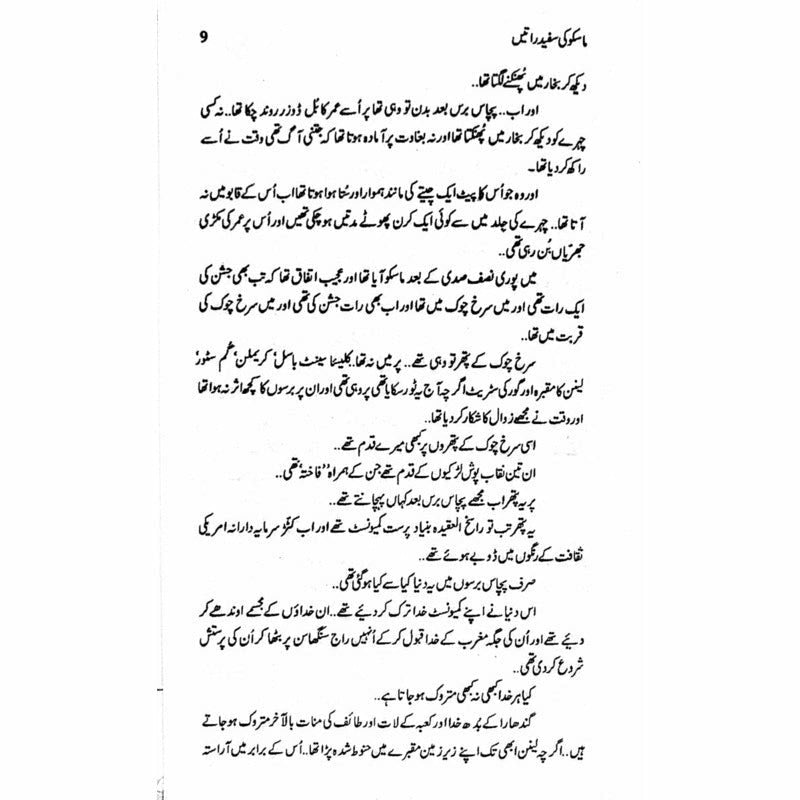 ماسکو کی سفید راتیں
9
دیکھ کر بخار میں پُھنکنے لگتا تھا..
اور اب.. پچاس برس بعد بدن تو وہی تھا پر اُسے عمر کا بُل ڈوزر روند چکا تھا.. نہ کسی
چہرے کو دیکھ کر بخار میں پُھنکتا تھا اور نہ بغاوت پر آمادہ ہوتا تھا کہ جتنی آگ تھی وقت نے اُسے
راکھ کر دیا تھا۔
اور وہ جو اُس کا پیٹ ایک چیتے کی مانند ہموار اور سُتا ہوا ہوتا تھا اب اُس کے قابو میں نہ
آتا تھا.. چہرے کی جلد میں سے کوئی ایک کرن پھوٹے مدتیں ہو چکی تھیں اور اُس پر عمر کی مکڑی
جھریاں بُن رہی تھی..
میں پوری نصف صدی کے بعد ماسکو آیا تھا اور عجیب اتفاق تھا کہ تب بھی جشن کی
ایک رات تھی اور میں سرخ چوک میں تھا اور اب بھی رات جشن کی تھی اور میں سرخ چوک کی
قربت میں تھا..
سرخ چوک کے پتھر تو وہی تھے.. پر میں نہ تھا.. کلیسا سینٹ باسل‘ کریملن‘ گم سٹور‘
لینن کا مقبرہ اور گورکی سٹریٹ اگرچہ آج یہ ٹورسکایا تھی پر وہی تھی اور ان پر برسوں کا کچھ اثر نہ ہوا تھا
اور وقت نے مجھے زوال کا شکار کر دیا تھا..
اسی سرخ چوک کے پتھروں پر کبھی میرے قدم تھے..
ان تین نقاب پوش لڑکیوں کے قدم تھے جن کے ہمراہ ’’فاختہ‘‘ تھی..
پر یہ پتھر اب مجھے پچاس برس بعد کہاں پہچانتے تھے..
یہ پتھر تب تو راسخ العقیدہ بنیاد پرست کمیونسٹ تھے اور اب کٹڑ سرمایہ دارانہ امریکی
ثقافت کے رنگوں میں ڈوبے ہوئے تھے..
صرف پچاس برسوں میں یہ دنیا کیا سے کیا ہو گئی تھی..
اس دنیا نے اپنے کمیونسٹ خدا ترک کر دیئے تھے.. ان خداؤں کے مجسمے اوندھے کر
دیئے تھے اور اُن کی جگہ مغرب کے خدا قبول کر کے اُنہیں راج سنگھاسن پر بٹھا کر اُن کی پرستش
شروع کر دی تھی..
کیا ہر خدا کبھی نہ کبھی متروک ہو جاتا ہے..
گندھارا کے بُدھ خدا اور کعبہ کے لات اور طائف کی منات بالآخر متروک ہو جاتے
ہیں.. اگرچہ لینن ابھی تک اپنے زیرِ زمین مقبرے میں حنوط شدہ پڑا تھا.. اُس کے برابر میں آراستہ